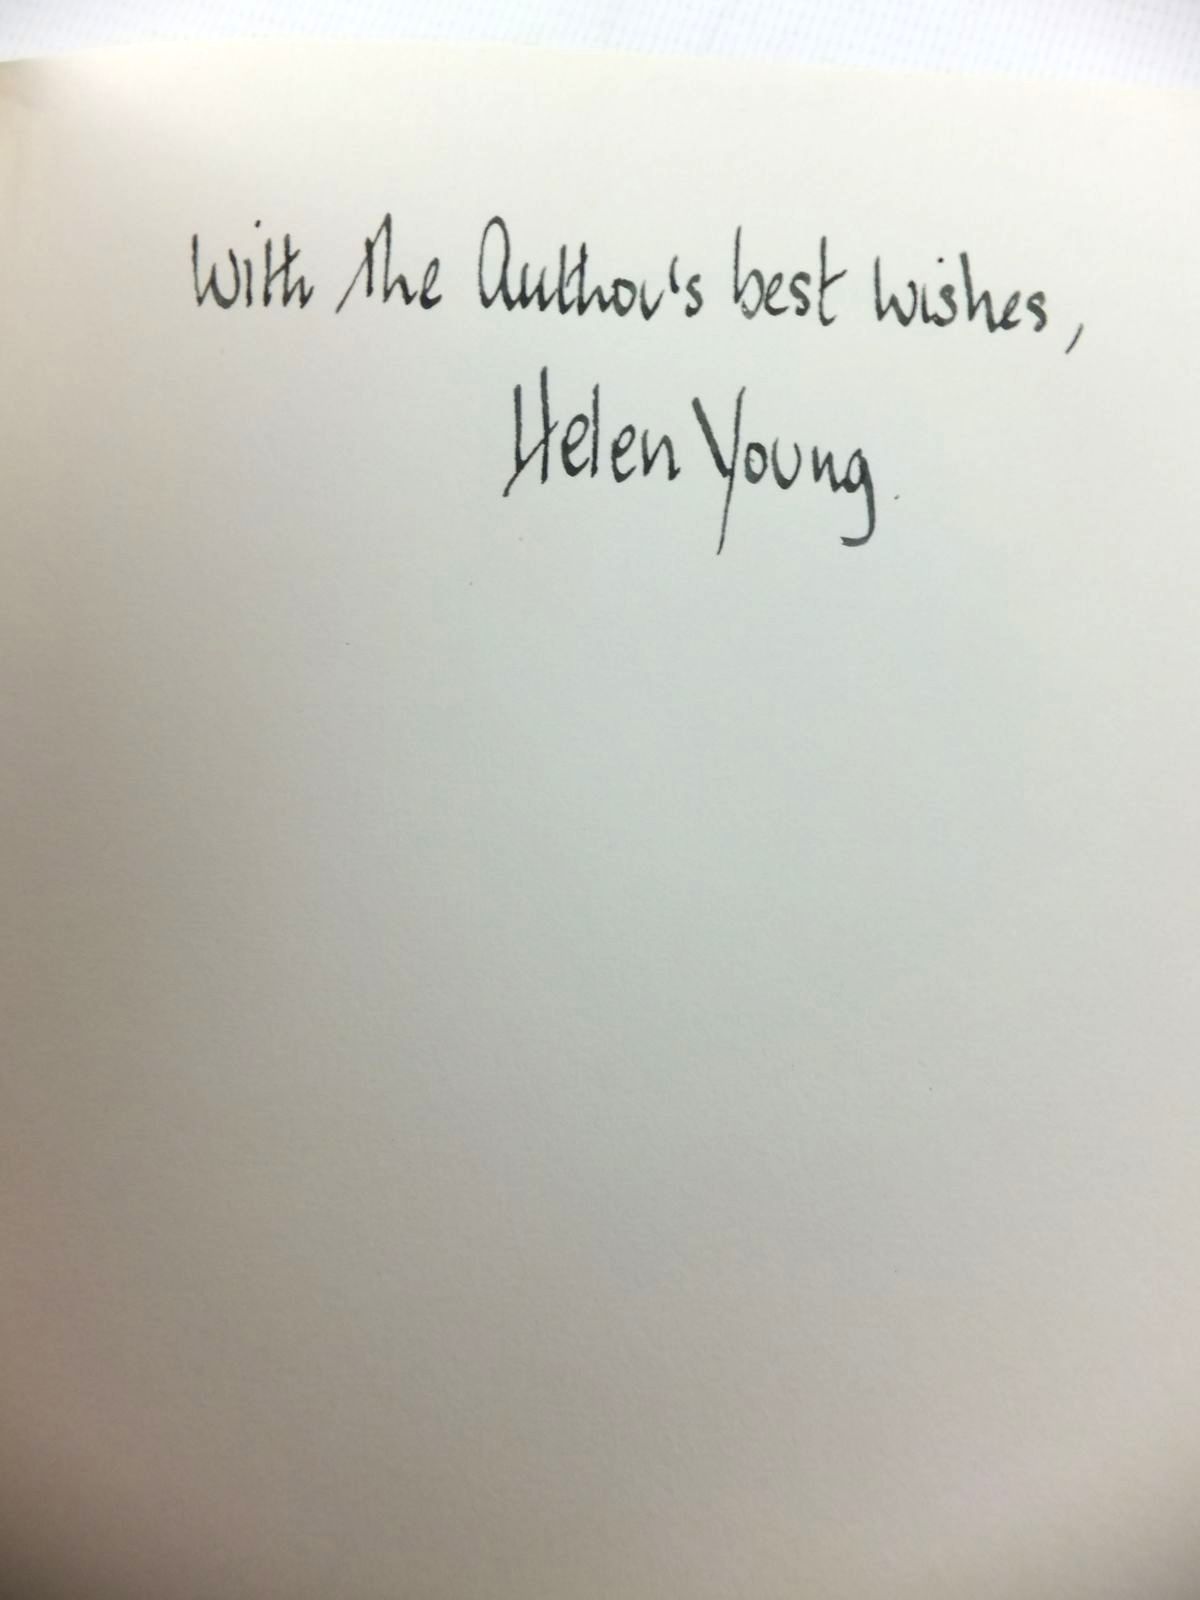 With the Author's best wishes,
Helen Young.